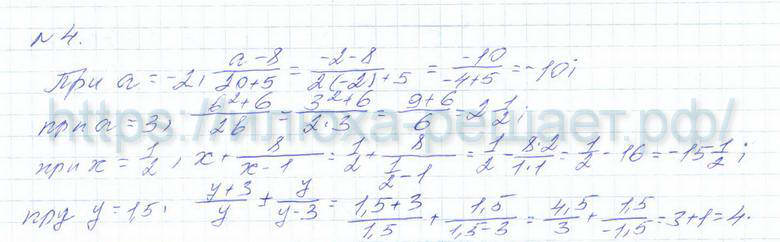 №4.
При a = -2, \frac{a-8}{2a+5} = \frac{-2-8}{2(-2)+5} = \frac{-10}{-4+5} = -10;
при a = 3, \frac{b^2+6}{2b} = \frac{3^2+6}{2·3} = \frac{9+6}{6} = 2\frac{1}{2};
при x = \frac{1}{2}, x + \frac{8}{x-1} = \frac{1}{2} + \frac{8}{\frac{1}{2}-1} = \frac{1}{2} - \frac{8·2}{1·1} = \frac{1}{2} - 16 = -15\frac{1}{2};
при y = 1,5, \frac{y+3}{y} + \frac{y}{y-3} = \frac{1,5+3}{1,5} + \frac{1,5}{1,5-3} = \frac{4,5}{3} + \frac{1,5}{-1,5} = 3+1 = 4.
https://плюха-решает.рф/